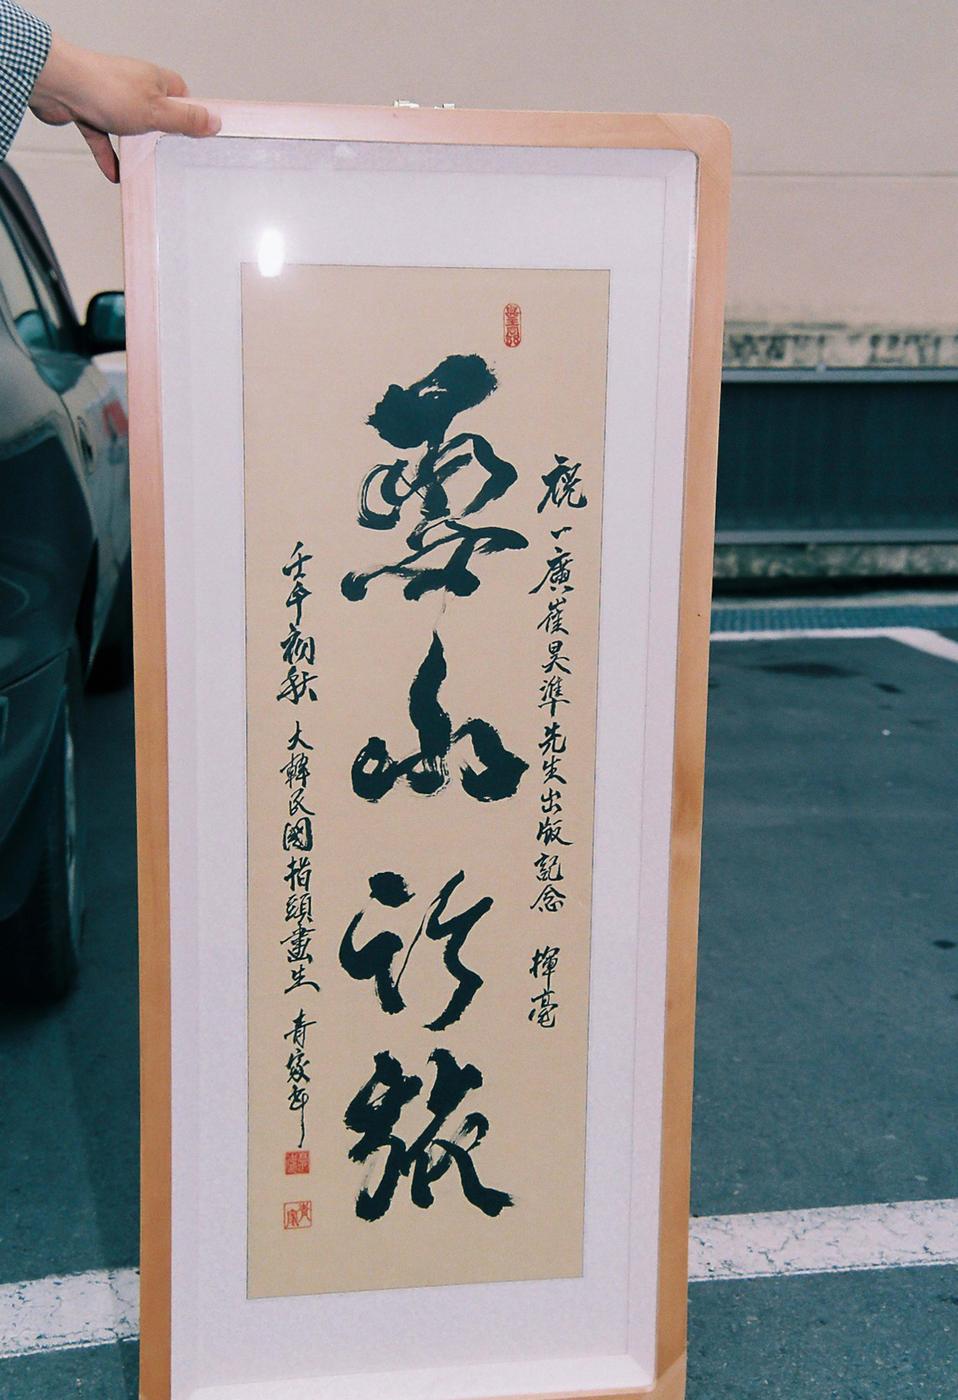 祝一廣崔昊準先生出版記念 揮毫
靈山行旅
壬午初秋 大韓民國指頭畫生 青